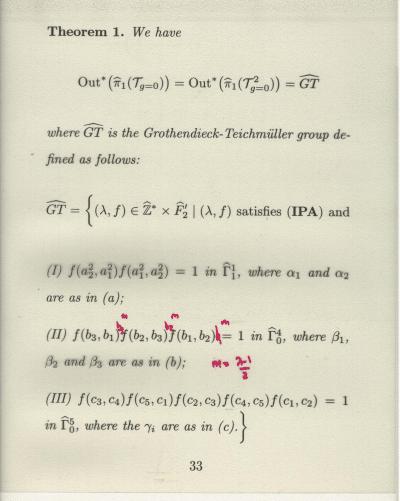 Theorem 1. We have
Out*(π̂₁(𝒯_{g=0})) = Out*(π̂₁(𝒯²_{g=0})) = ĜT
where ĜT is the Grothendieck-Teichmüller group de-
fined as follows:
ĜT = {(λ, f) ∈ Ẑ* × F̂′₂ | (λ, f) satisfies (IPA) and
(I) f(a₂², a₁²)f(a₁², a₂²) = 1 in Γ̂₁¹, where α₁ and α₂
are as in (a);
m m m
(II) f(b₃, b₁)f(b₂, b₃)f(b₁, b₂) = 1 in Γ̂₀⁴, where β₁,
β₂ and β₃ are as in (b); m = λ-1/2
(III) f(c₃, c₄)f(c₅, c₁)f(c₂, c₃)f(c₄, c₅)f(c₁, c₂) = 1
in Γ̂₀⁵, where the γᵢ are as in (c).}
33